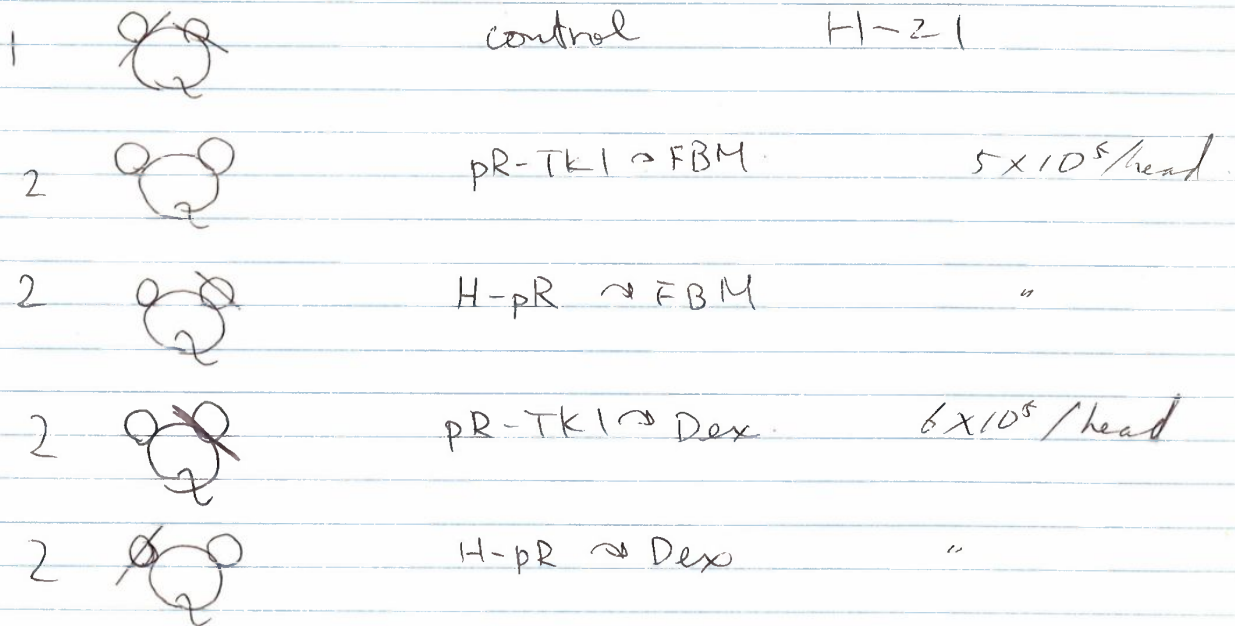 1 control H-21
2 pR-TK1 → FBM. 5×10⁵/head.
2 H-pR → FBM 〃
2 pR-TK1 → Dex. 6×10⁵/head
2 H-pR → Dex 〃